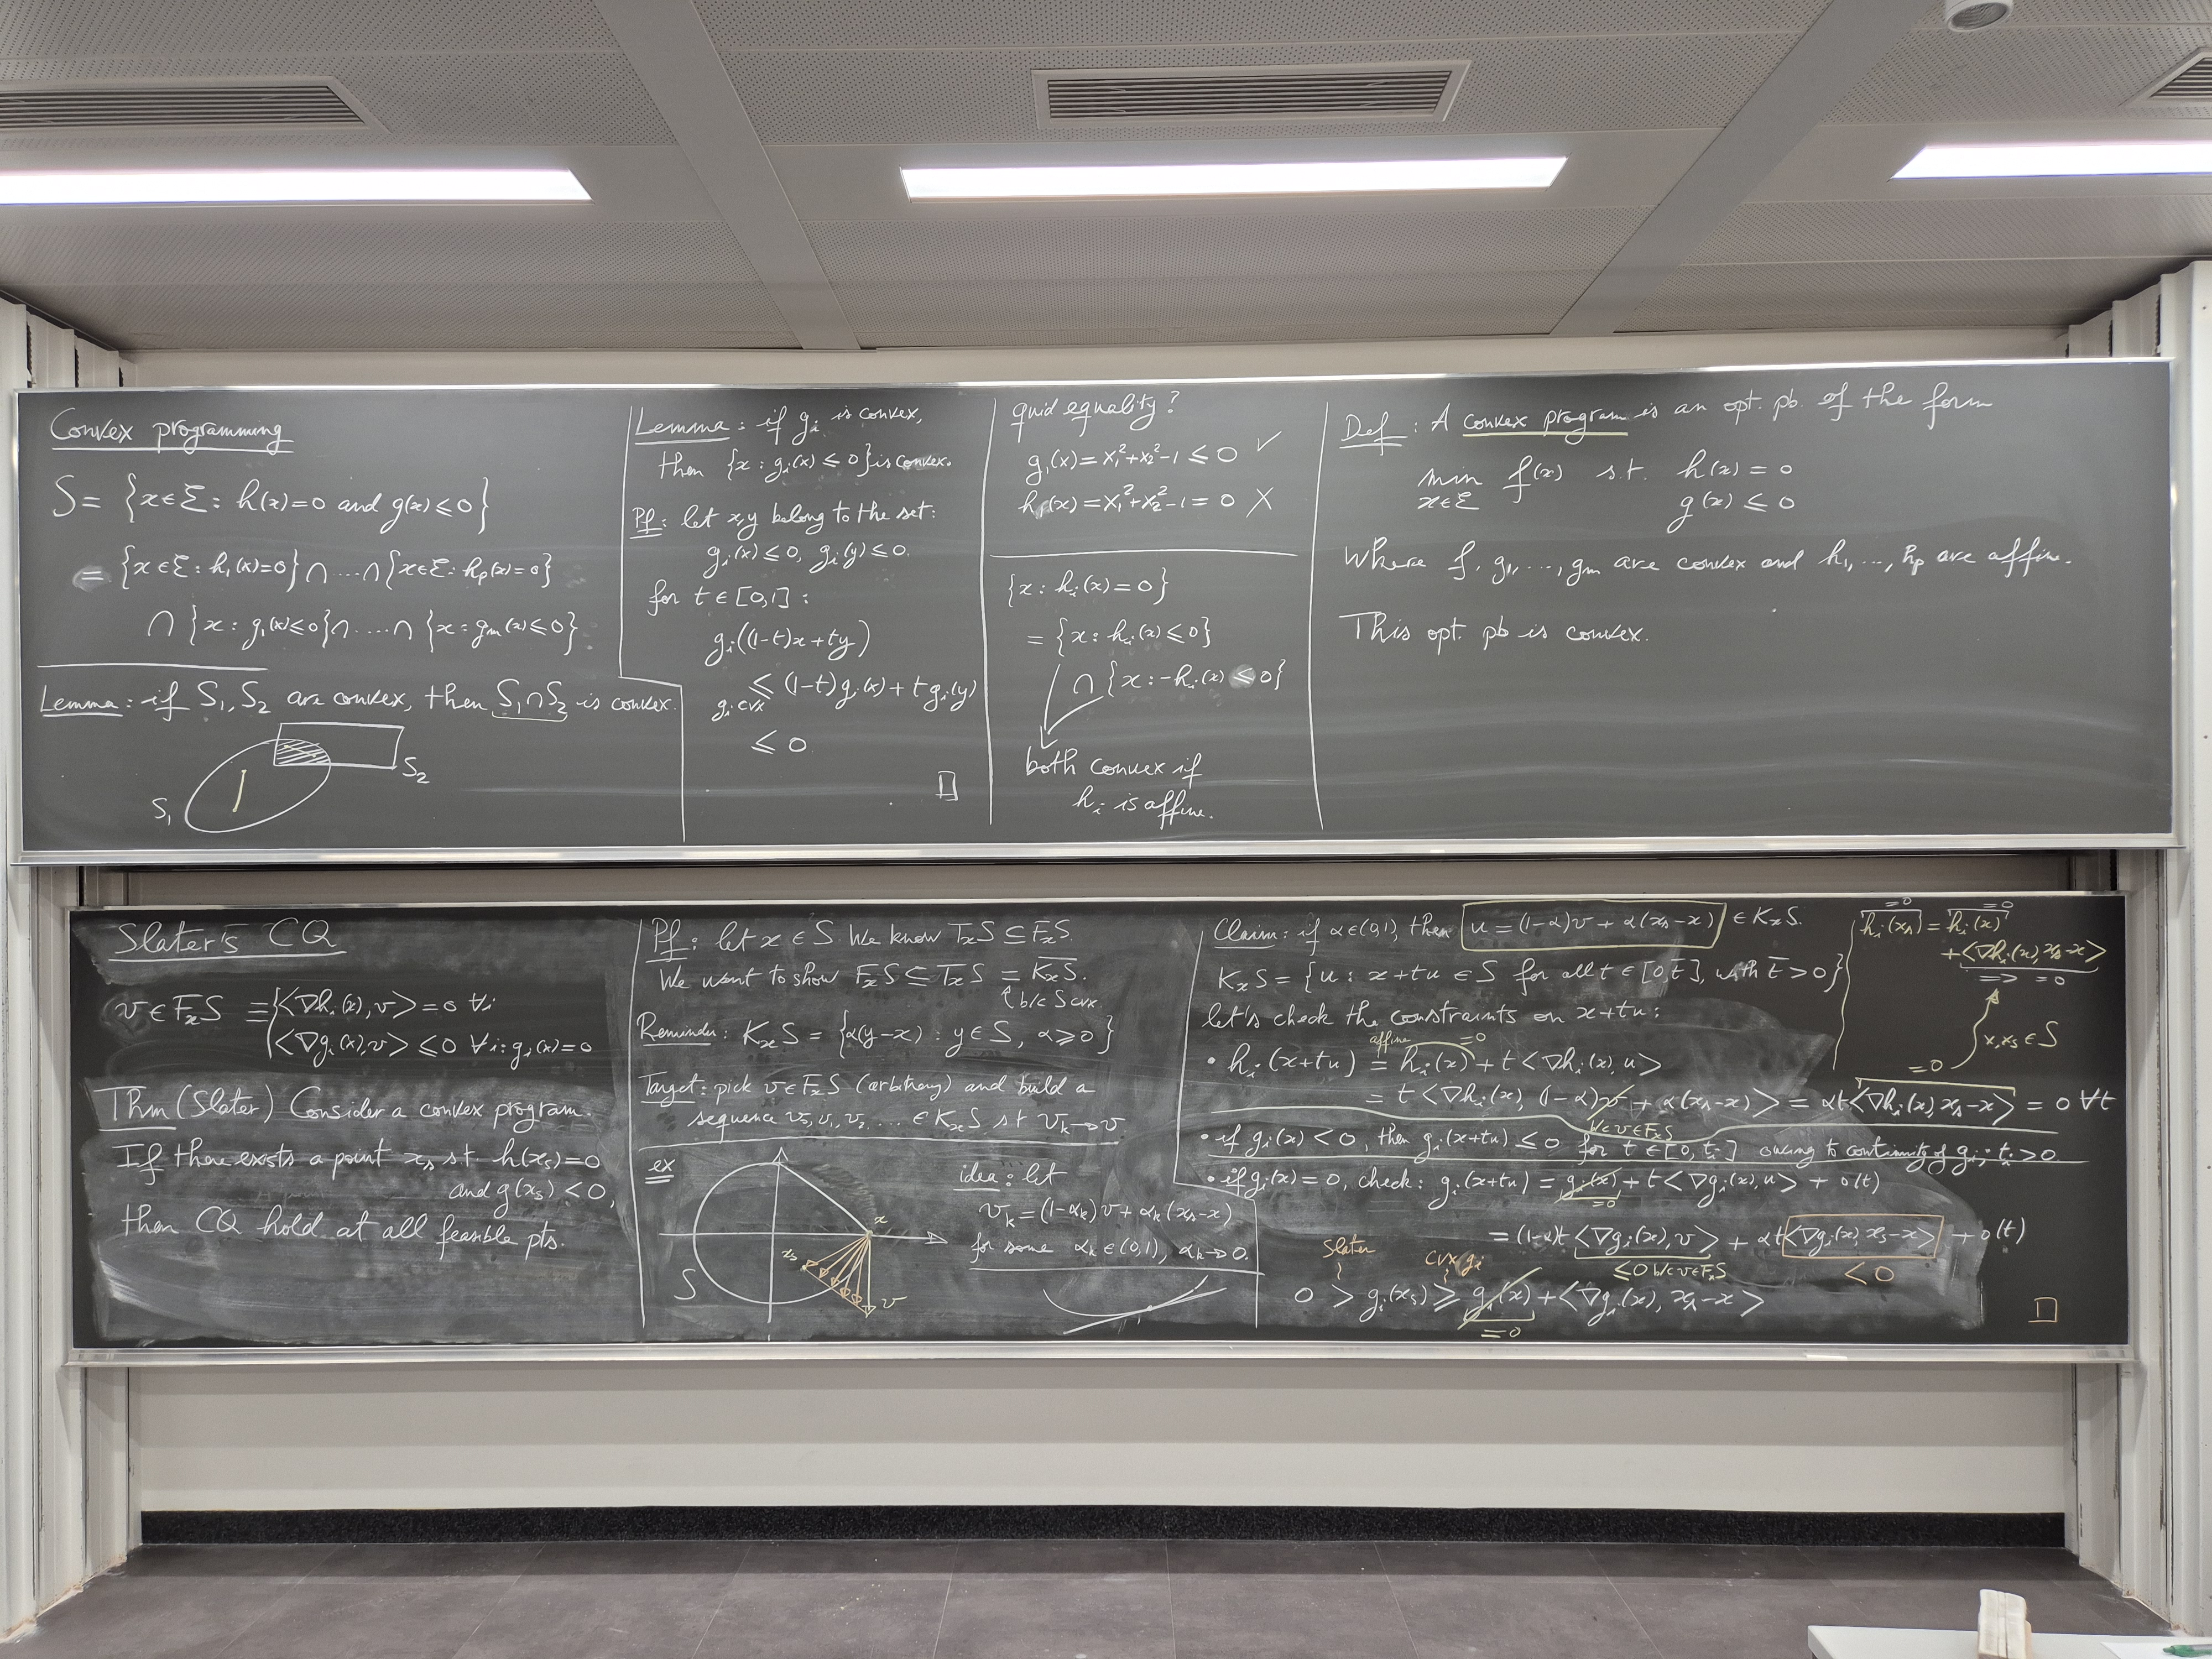 Convex programming
S = {x∈ℰ : h(x)=0 and g(x)≤0}
= {x∈ℰ : h₁(x)=0} ∩ .... ∩ {x∈ℰ : hₚ(x)=0}
∩ {x : g₁(x)≤0} ∩ .... ∩ {x : gₘ(x)≤0}
Lemma : if S₁, S₂ are convex, then S₁∩S₂ is convex.
S₁
S₂
Lemma : if gᵢ is convex,
then {x : gᵢ(x) ≤ 0} is convex.
Pf : let x,y belong to the set :
gᵢ(x) ≤ 0, gᵢ(y) ≤ 0.
for t ∈ [0,1] :
gᵢ((1-t)x + ty)
≤ (1-t)gᵢ(x) + t gᵢ(y)
gᵢ cvx
≤ 0
□
quid equality ?
g₁(x) = x₁²+x₂²-1 ≤ 0 ✓
h₁(x) = x₁²+x₂²-1 = 0 X
{x : hᵢ(x) = 0}
= {x : hᵢ(x) ≤ 0}
∩ {x : -hᵢ(x) ≤ 0}
both convex if
hᵢ is affine.
Def : A convex program is an opt. pb. of the form
min f(x) s.t. h(x) = 0
x∈ℰ g(x) ≤ 0
Where f, g₁, ..., gₘ are convex and h₁, ..., hₚ are affine.
This opt. pb is convex.
Slater's CQ
v ∈ FₓS ≡ { ⟨∇hᵢ(x), v⟩ = 0 ∀i
⟨∇gᵢ(x), v⟩ ≤ 0 ∀i : gᵢ(x) = 0
Thm (Slater) Consider a convex program.
If there exists a point xₛ st. h(xₛ)=0
and g(xₛ) < 0,
then CQ hold at all feasible pts.
Pf : let x ∈ S. We know TₓS ⊆ FₓS.
We want to show FₓS ⊆ TₓS = \overline{KₓS}.
↑ b/c S cvx.
Reminder : KₓS = {α(y-x) : y ∈ S, α ≥ 0}
Target : pick v ∈ FₓS (arbitrary) and build a
sequence v₀, v₁, v₂, ... ∈ KₓS st vₖ → v
ex
x
xₛ
S
v
idea : let
vₖ = (1-αₖ)v + αₖ(xₛ-x)
for some αₖ ∈ (0,1), αₖ → 0.
Claim : if α∈(0,1), then u = (1-α)v + α(xₛ-x) ∈ KₓS.
KₓS = {u : x+tu ∈ S for all t ∈ [0,t̄], with t̄ > 0}
let's check the constraints on x+tu :
affine =0
• hᵢ(x+tu) = hᵢ(x) + t⟨∇hᵢ(x), u⟩
=0
= t⟨∇hᵢ(x), (1-α)v + α(xₛ-x)⟩ = αt⟨∇hᵢ(x), xₛ-x⟩ = 0 ∀t
b/c v∈FₓS
• if gᵢ(x) < 0, then gᵢ(x+tu) ≤ 0 for t ∈ [0, tᵢ] owing to continuity of gᵢ ; tᵢ > 0.
• if gᵢ(x) = 0, check : gᵢ(x+tu) = gᵢ(x) + t⟨∇gᵢ(x), u⟩ + o(t)
=0
= (1-α)t ⟨∇gᵢ(x), v⟩ + αt⟨∇gᵢ(x), xₛ-x⟩ + o(t)
≤0 b/c v∈FₓS
< 0
Slater
cvx gᵢ
0 > gᵢ(xₛ) ≥ gᵢ(x) + ⟨∇gᵢ(x), xₛ-x⟩
=0
□
=0 =0
hᵢ(xₛ) = hᵢ(x)
+ ⟨∇hᵢ(x), xₛ-x⟩
=> = 0
x, xₛ ∈ S